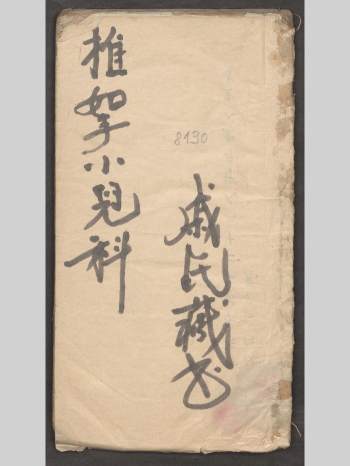 推挐小兒科
8190
戚氏藏书